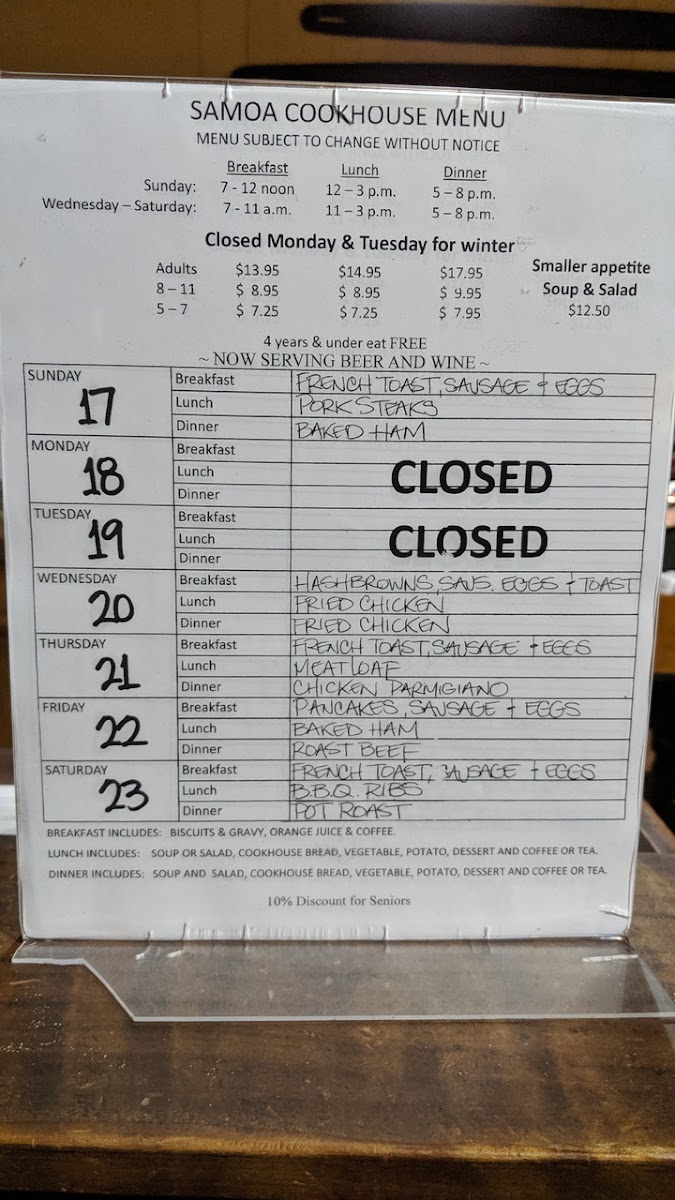 SAMOA COOKHOUSE MENU
MENU SUBJECT TO CHANGE WITHOUT NOTICE
Breakfast Lunch Dinner
Sunday: 7 - 12 noon 12 – 3 p.m. 5 – 8 p.m.
Wednesday – Saturday: 7 - 11 a.m. 11 – 3 p.m. 5 – 8 p.m.
Closed Monday & Tuesday for winter
Adults $13.95 $14.95 $17.95 Smaller appetite
8 – 11 $ 8.95 $ 8.95 $ 9.95 Soup & Salad
5 – 7 $ 7.25 $ 7.25 $ 7.95 $12.50
4 years & under eat FREE
~ NOW SERVING BEER AND WINE ~
SUNDAY 17 Breakfast FRENCH TOAST, SAUSAGE & EGGS
Lunch PORK STEAKS
Dinner BAKED HAM
MONDAY 18 Breakfast
Lunch CLOSED
Dinner
TUESDAY 19 Breakfast
Lunch CLOSED
Dinner
WEDNESDAY 20 Breakfast HASHBROWNS, SAUS. EGGS + TOAST
Lunch FRIED CHICKEN
Dinner FRIED CHICKEN
THURSDAY 21 Breakfast FRENCH TOAST, SAUSAGE + EGGS
Lunch MEATLOAF
Dinner CHICKEN PARMIGIANO
FRIDAY 22 Breakfast PANCAKES, SAUSAGE + EGGS
Lunch BAKED HAM
Dinner ROAST BEEF
SATURDAY 23 Breakfast FRENCH TOAST, SAUSAGE + EGGS
Lunch B.B.Q. RIBS
Dinner POT ROAST
BREAKFAST INCLUDES: BISCUITS & GRAVY, ORANGE JUICE & COFFEE.
LUNCH INCLUDES: SOUP OR SALAD, COOKHOUSE BREAD, VEGETABLE, POTATO, DESSERT AND COFFEE OR TEA.
DINNER INCLUDES: SOUP AND SALAD, COOKHOUSE BREAD, VEGETABLE, POTATO, DESSERT AND COFFEE OR TEA.
10% Discount for Seniors